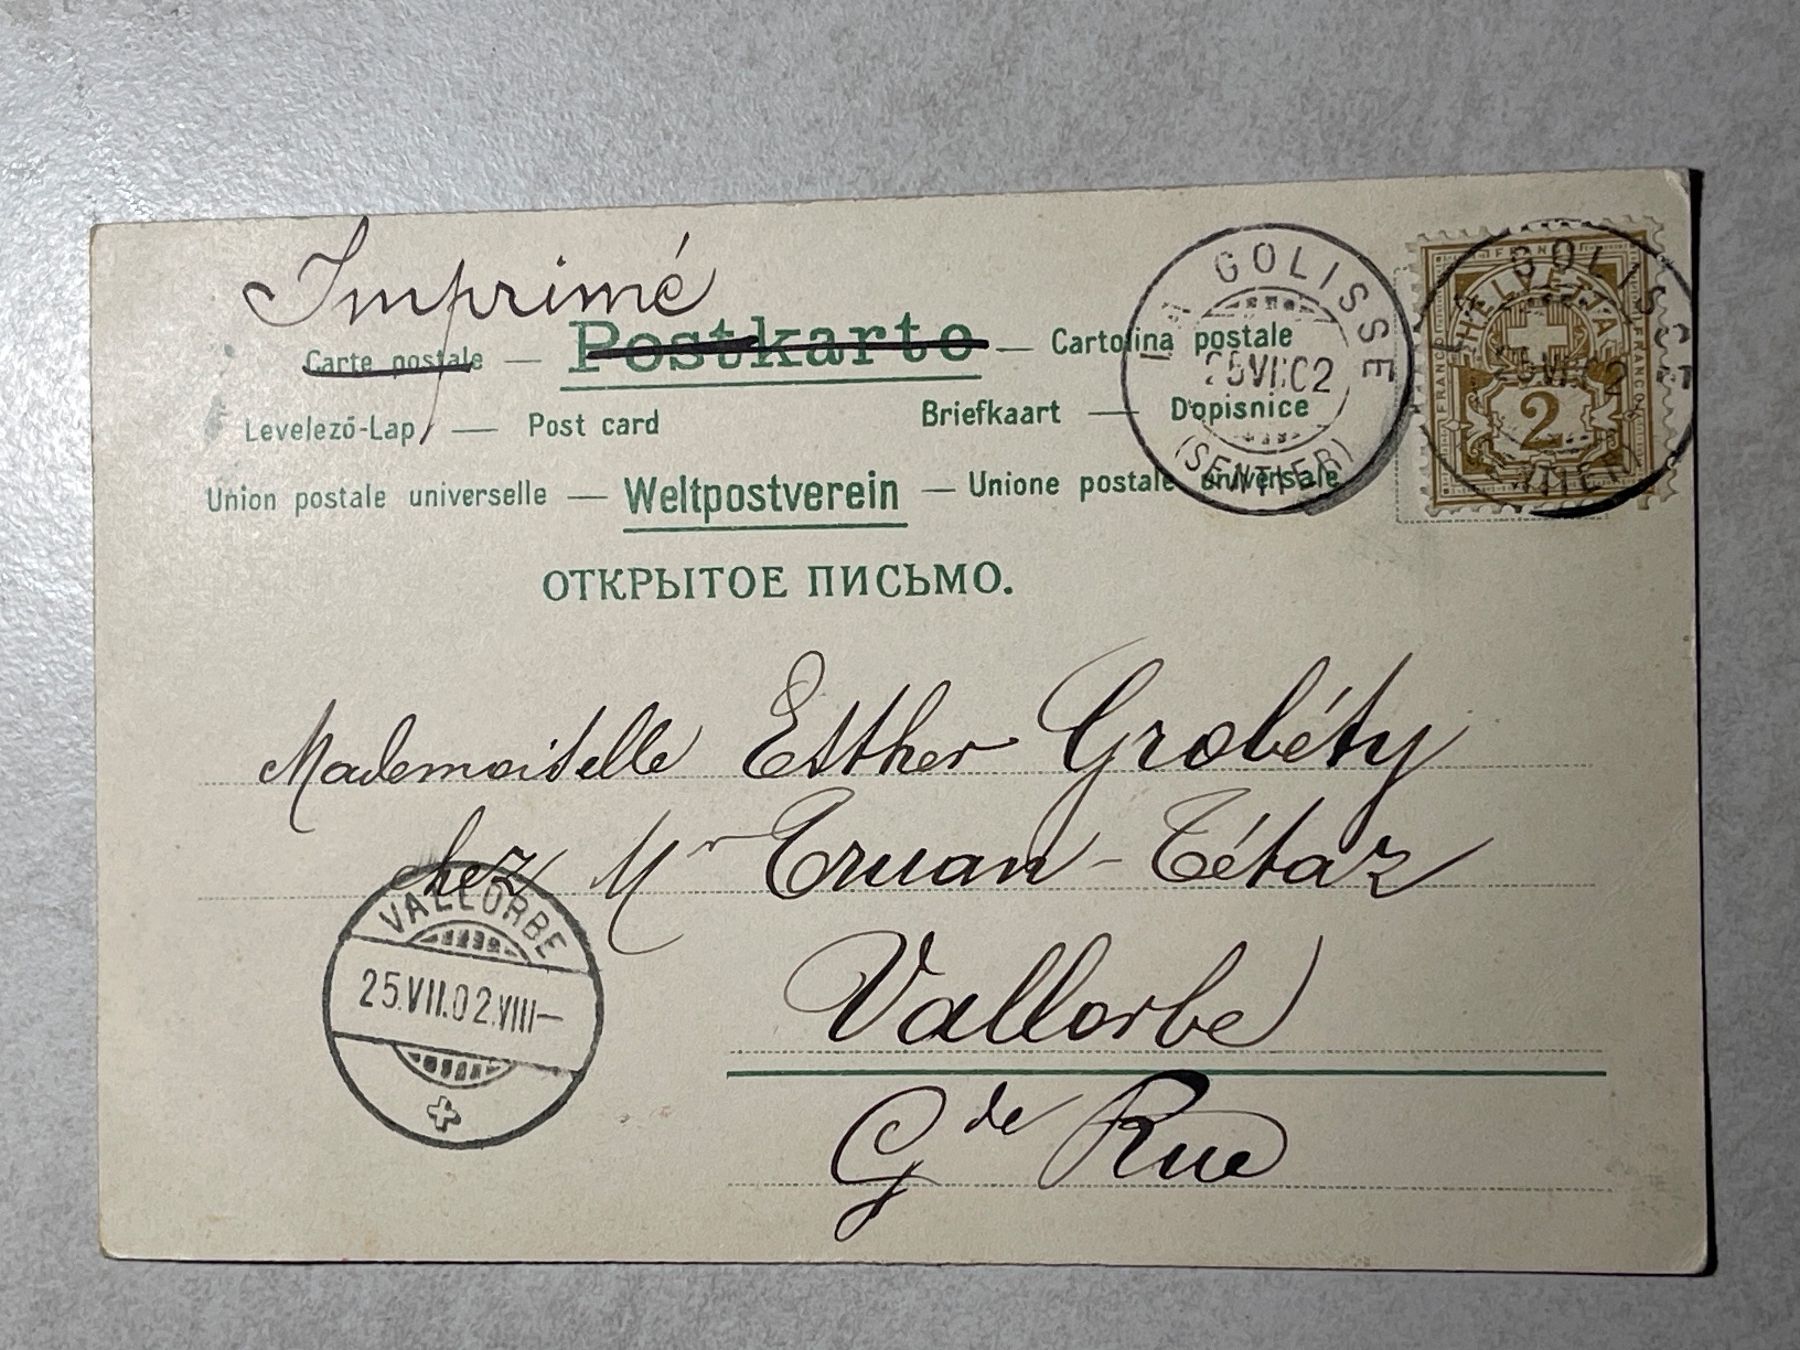 Imprimé
Carte postale — Postkarte — Cartolina postale
Levelező-Lap — Post card Briefkaart — Dopisnice
Union postale universelle — Weltpostverein — Unione postale universale
ОТКРЫТОЕ ПИСЬМО.
GOLISSE
25 VII 02
(SENTIER)
HELVETIA
FRANCO
2
GOLISSE
Mademoiselle Esther Grobéty
chez Mr Truan-Tétaz
Vallorbe
Gde Rue
VALLORBE
25.VII.02.VIII—